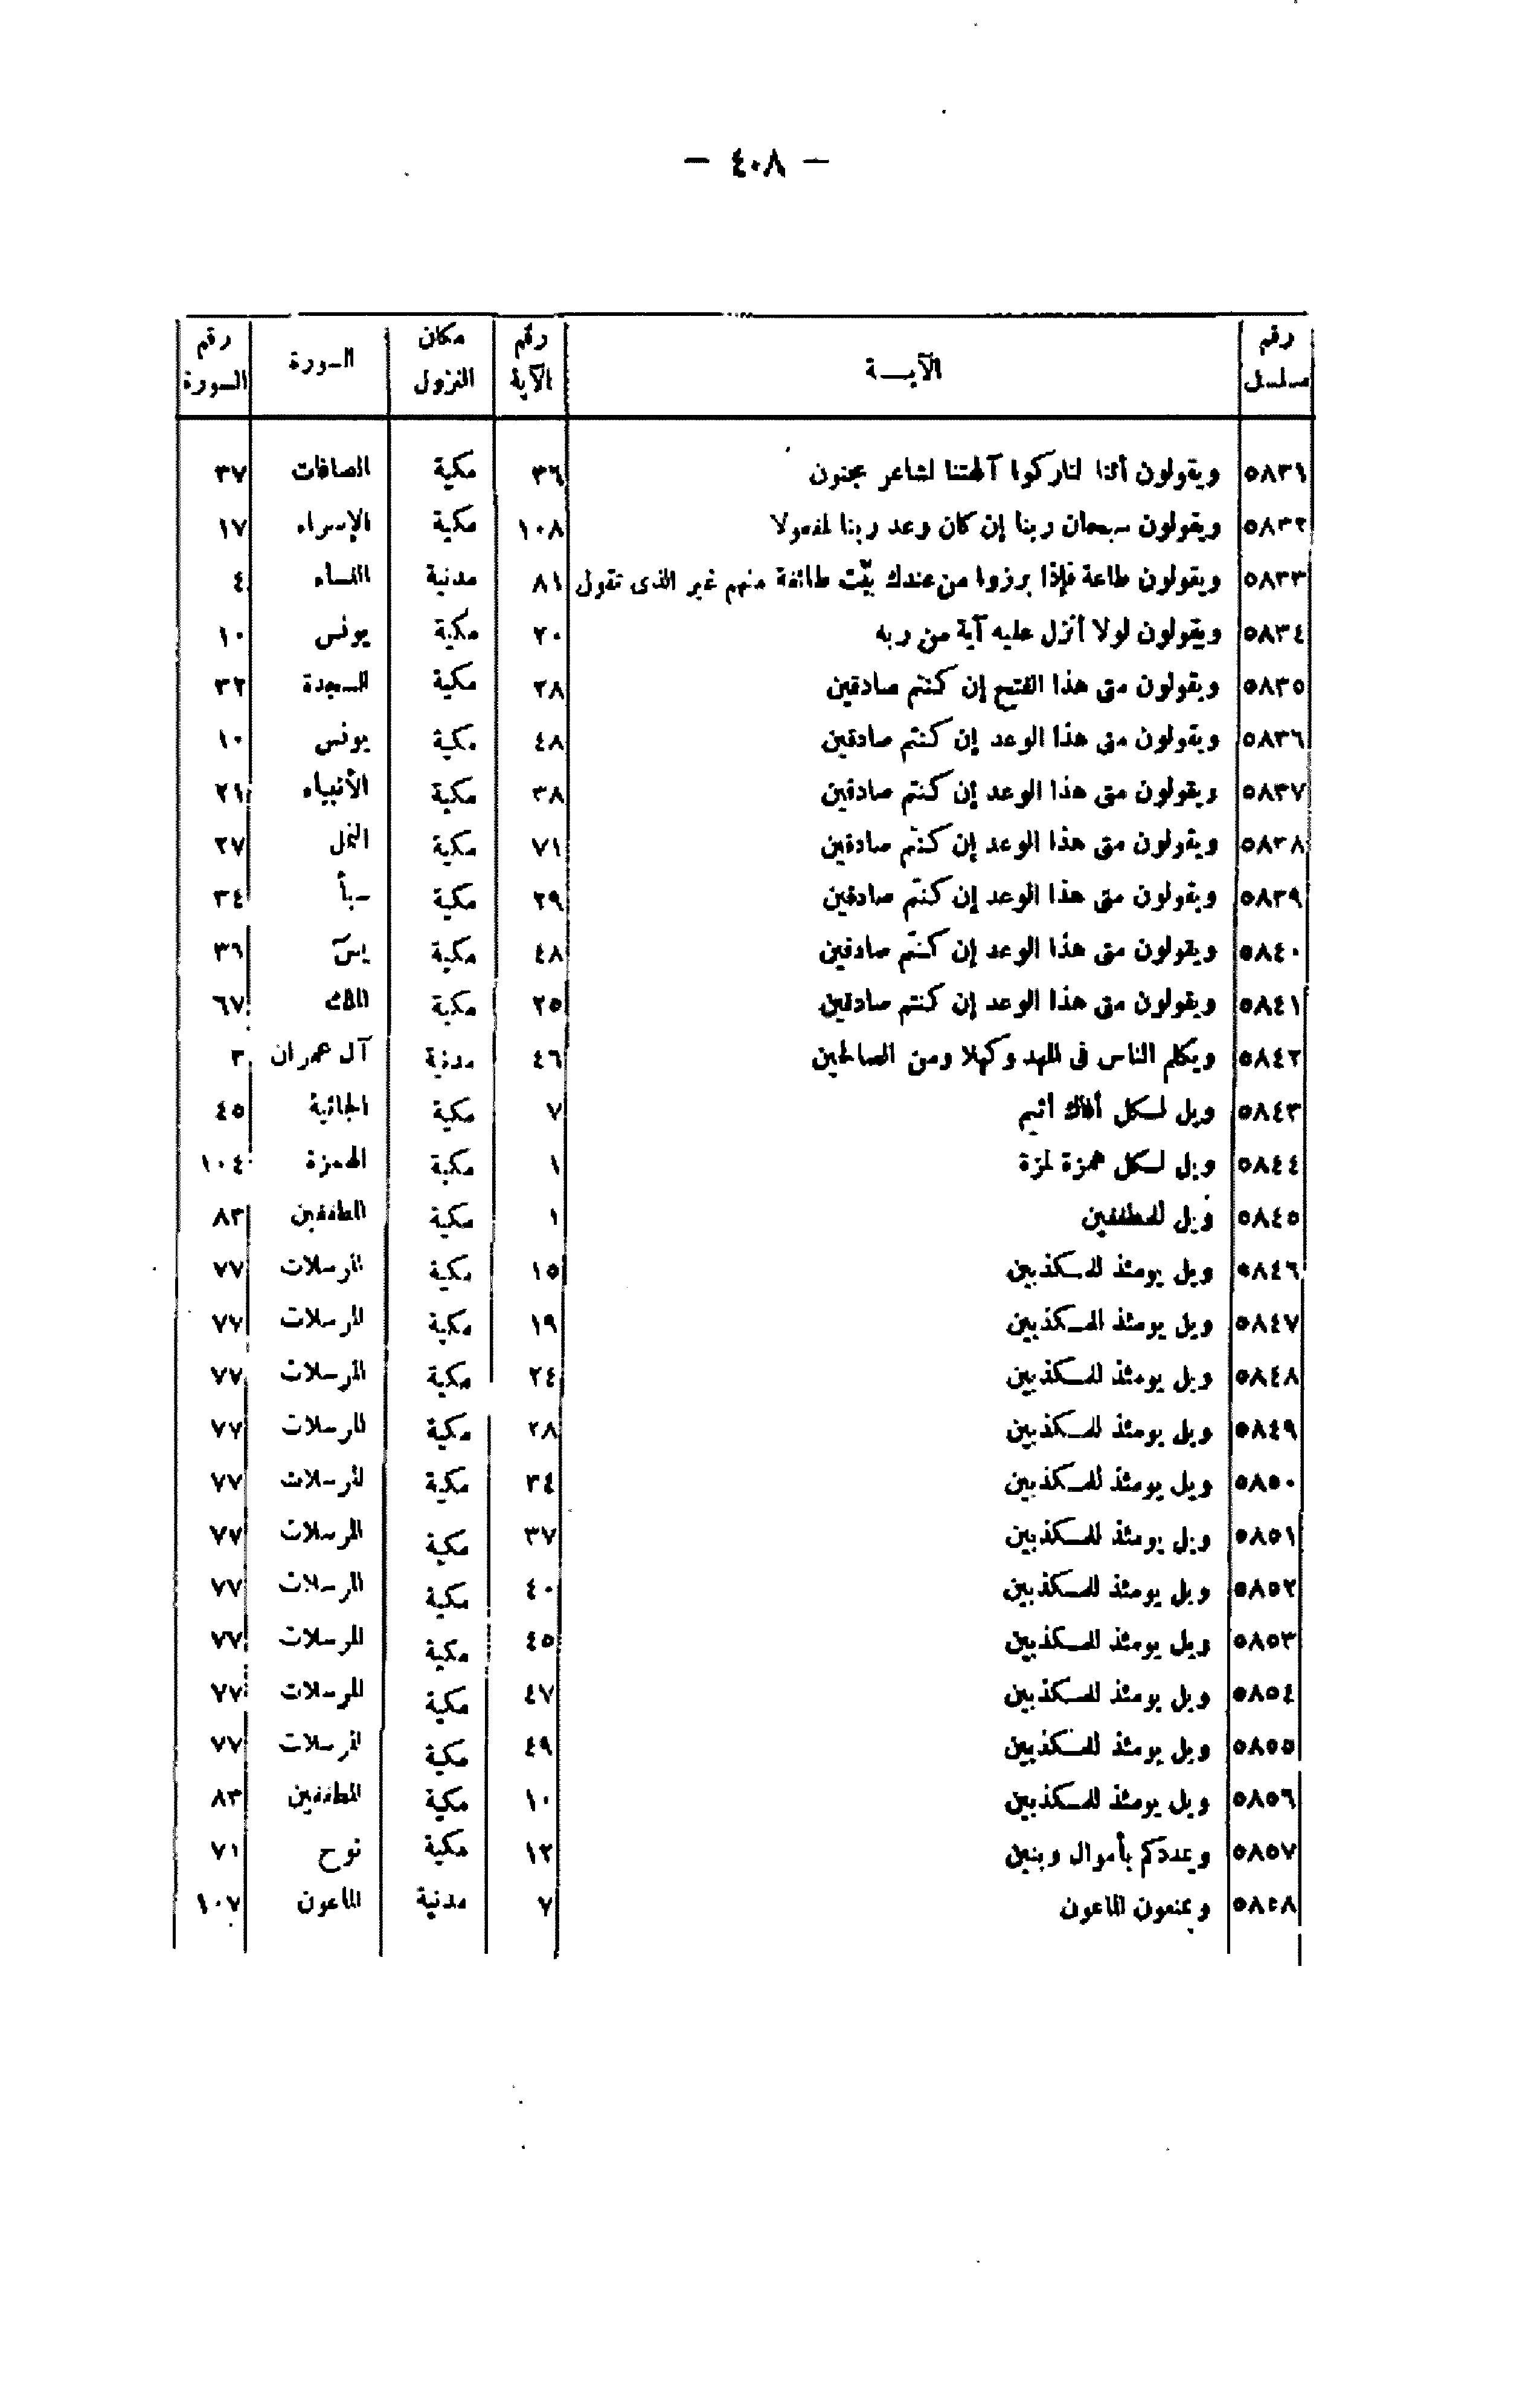 — ٤٠٨ —
رقم مسلسل الآيــة رقم الآية مكان النزول السورة رقم السورة
٥٨٣١ ويقولون أئنا لتاركوا آلهتنا لشاعر مجنون ٣٦ مكية الصافات ٣٧
٥٨٣٢ ويقولون سبحان ربنا إن كان وعد ربنا لمفعولا ١٠٨ مكية الإسراء ١٧
٥٨٣٣ ويقولون طاعة فإذا برزوا من عندك بيّت طائفة منهم غير الذى تقول ٨١ مدنية النساء ٤
٥٨٣٤ ويقولون لولا أنزل عليه آية من ربه ٢٠ مكية يونس ١٠
٥٨٣٥ ويقولون متى هذا الفتح إن كنتم صادقين ٢٨ مكية السجدة ٣٢
٥٨٣٦ ويقولون متى هذا الوعد إن كنتم صادقين ٤٨ مكية يونس ١٠
٥٨٣٧ ويقولون متى هذا الوعد إن كنتم صادقين ٣٨ مكية الأنبياء ٢١
٥٨٣٨ ويقولون متى هذا الوعد إن كنتم صادقين ٧١ مكية النمل ٢٧
٥٨٣٩ ويقولون متى هذا الوعد إن كنتم صادقين ٢٩ مكية سبأ ٣٤
٥٨٤٠ ويقولون متى هذا الوعد إن كنتم صادقين ٤٨ مكية يس ٣٦
٥٨٤١ ويقولون متى هذا الوعد إن كنتم صادقين ٢٥ مكية الملك ٦٧
٥٨٤٢ ويكلم الناس فى المهد وكهلا ومن الصالحين ٤٦ مدنية آل عمران ٣
٥٨٤٣ ويل لكل أفاك أثيم ٧ مكية الجاثية ٤٥
٥٨٤٤ ويل لكل همزة لمزة ١ مكية الهمزة ١٠٤
٥٨٤٥ ويل للمطففين ١ مكية المطففين ٨٣
٥٨٤٦ ويل يومئذ للمكذبين ١٥ مكية المرسلات ٧٧
٥٨٤٧ ويل يومئذ للمكذبين ١٩ مكية المرسلات ٧٧
٥٨٤٨ ويل يومئذ للمكذبين ٢٤ مكية المرسلات ٧٧
٥٨٤٩ ويل يومئذ للمكذبين ٢٨ مكية المرسلات ٧٧
٥٨٥٠ ويل يومئذ للمكذبين ٣٤ مكية المرسلات ٧٧
٥٨٥١ ويل يومئذ للمكذبين ٣٧ مكية المرسلات ٧٧
٥٨٥٢ ويل يومئذ للمكذبين ٤٠ مكية المرسلات ٧٧
٥٨٥٣ ويل يومئذ للمكذبين ٤٥ مكية المرسلات ٧٧
٥٨٥٤ ويل يومئذ للمكذبين ٤٧ مكية المرسلات ٧٧
٥٨٥٥ ويل يومئذ للمكذبين ٤٩ مكية المرسلات ٧٧
٥٨٥٦ ويل يومئذ للمكذبين ١٠ مكية المطففين ٨٣
٥٨٥٧ ويمددكم بأموال وبنين ١٢ مكية نوح ٧١
٥٨٥٨ ويمنعون الماعون ٧ مدنية الماعون ١٠٧